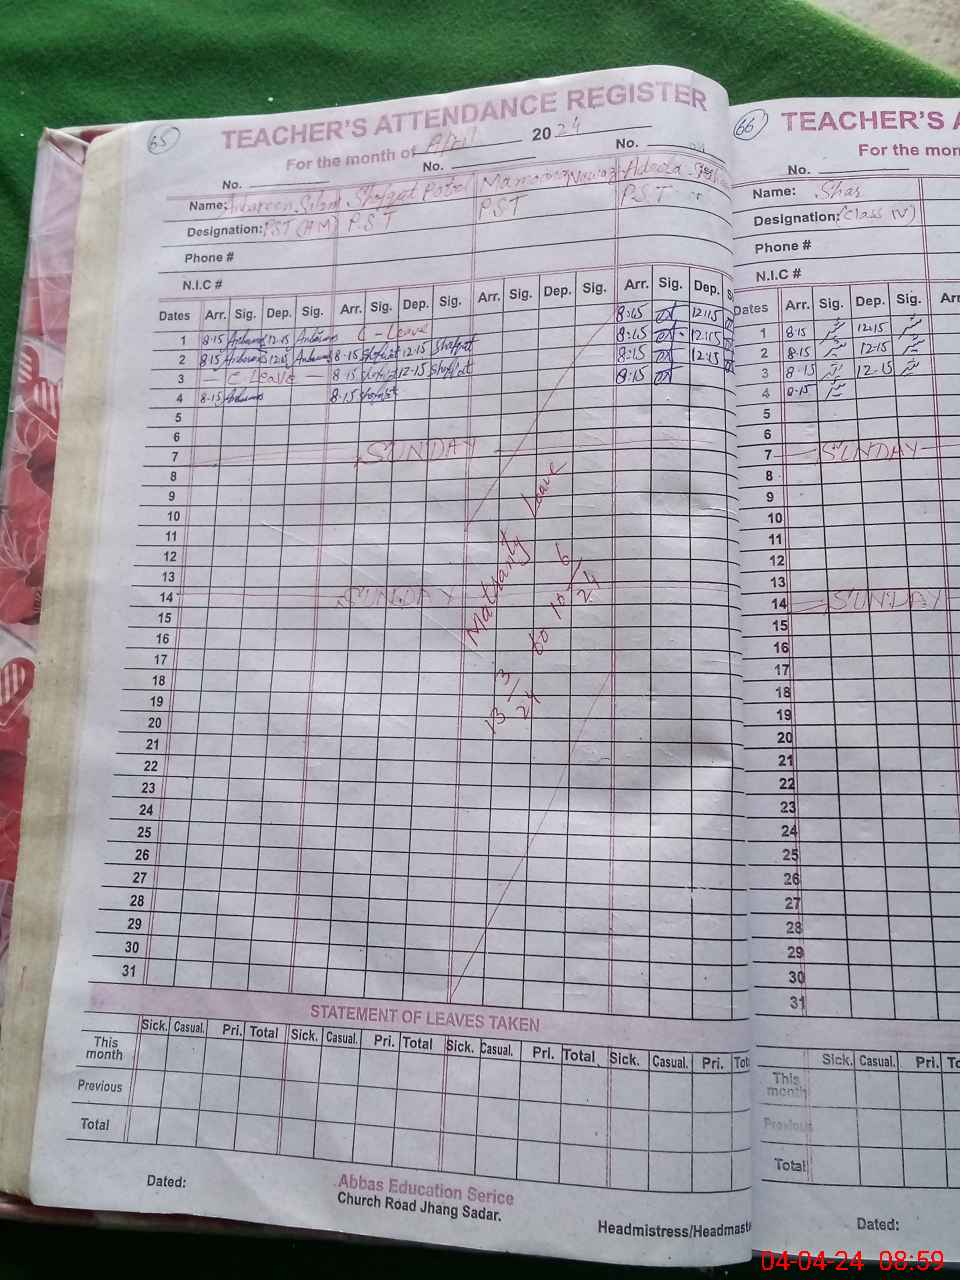 65
TEACHER'S ATTENDANCE REGISTER
For the month of April 2024
No. No. No.
Name: Shafqat Nawaz
Designation: PST (HM) P.S.T P.S.T P.S.T
Phone #
N.I.C #
Dates Arr. Sig. Dep. Sig. Arr. Sig. Dep. Sig. Arr. Sig. Dep. Sig. Arr. Sig. Dep.
1 8-15 12-15 C-Leave 8:15 12:15
2 8-15 12-15 8-15 Shafqat 12-15 Shafqat 8:15 12:15
3 - C-Leave - 8-15 Shafqat 12-15 Shafqat 8:15 12:15
4 8-15 8-15 Shafqat 8:15
5
6
7 SUNDAY
8
9
10
11
12
13
14 SUNDAY
15
16
17
18
19
20
21
22
23
24
25
26
27
28
29
30
31
Mathanty Leave
13 3/24 to 10 6/24
STATEMENT OF LEAVES TAKEN
Sick. Casual. Pri. Total Sick. Casual. Pri. Total Sick. Casual. Pri. Total Sick. Casual. Pri. Tot
This month
Previous
Total
Dated:
Abbas Education Serice
Church Road Jhang Sadar.
Headmistress/Headmaste
66
TEACHER'S A
For the mon
No.
Name:
Designation: (Class IV)
Phone #
N.I.C #
Dates Arr. Sig. Dep. Sig. Arr
1 8-15 12-15
2 8-15 12-15
3 8-15 12-15
4 8-15
5
6
7 SUNDAY
8
9
10
11
12
13
14 SUNDAY
15
16
17
18
19
20
21
22
23
24
25
26
27
28
29
30
31
Sick. Casual. Pri. To
This month
Previous
Total
Dated:
04-04-24 08:59